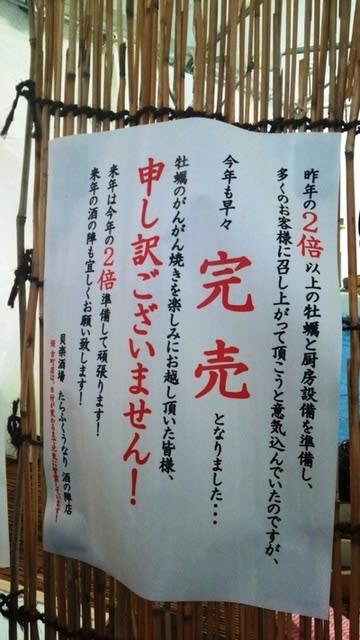 昨年の2倍以上の牡蠣と厨房設備を準備し、
多くのお客様に召し上がって頂こうと意気込んでいたのですが、
今年も早々 完売 となりました・・・
牡蠣のがんがん焼きを楽しみにお越し頂いた皆様、
申し訳ございません！
来年は今年の2倍準備して頑張ります！
来年の酒の陣も宜しくお願い致します！
貝楽酒場 たらふくうなり 酒の陣店